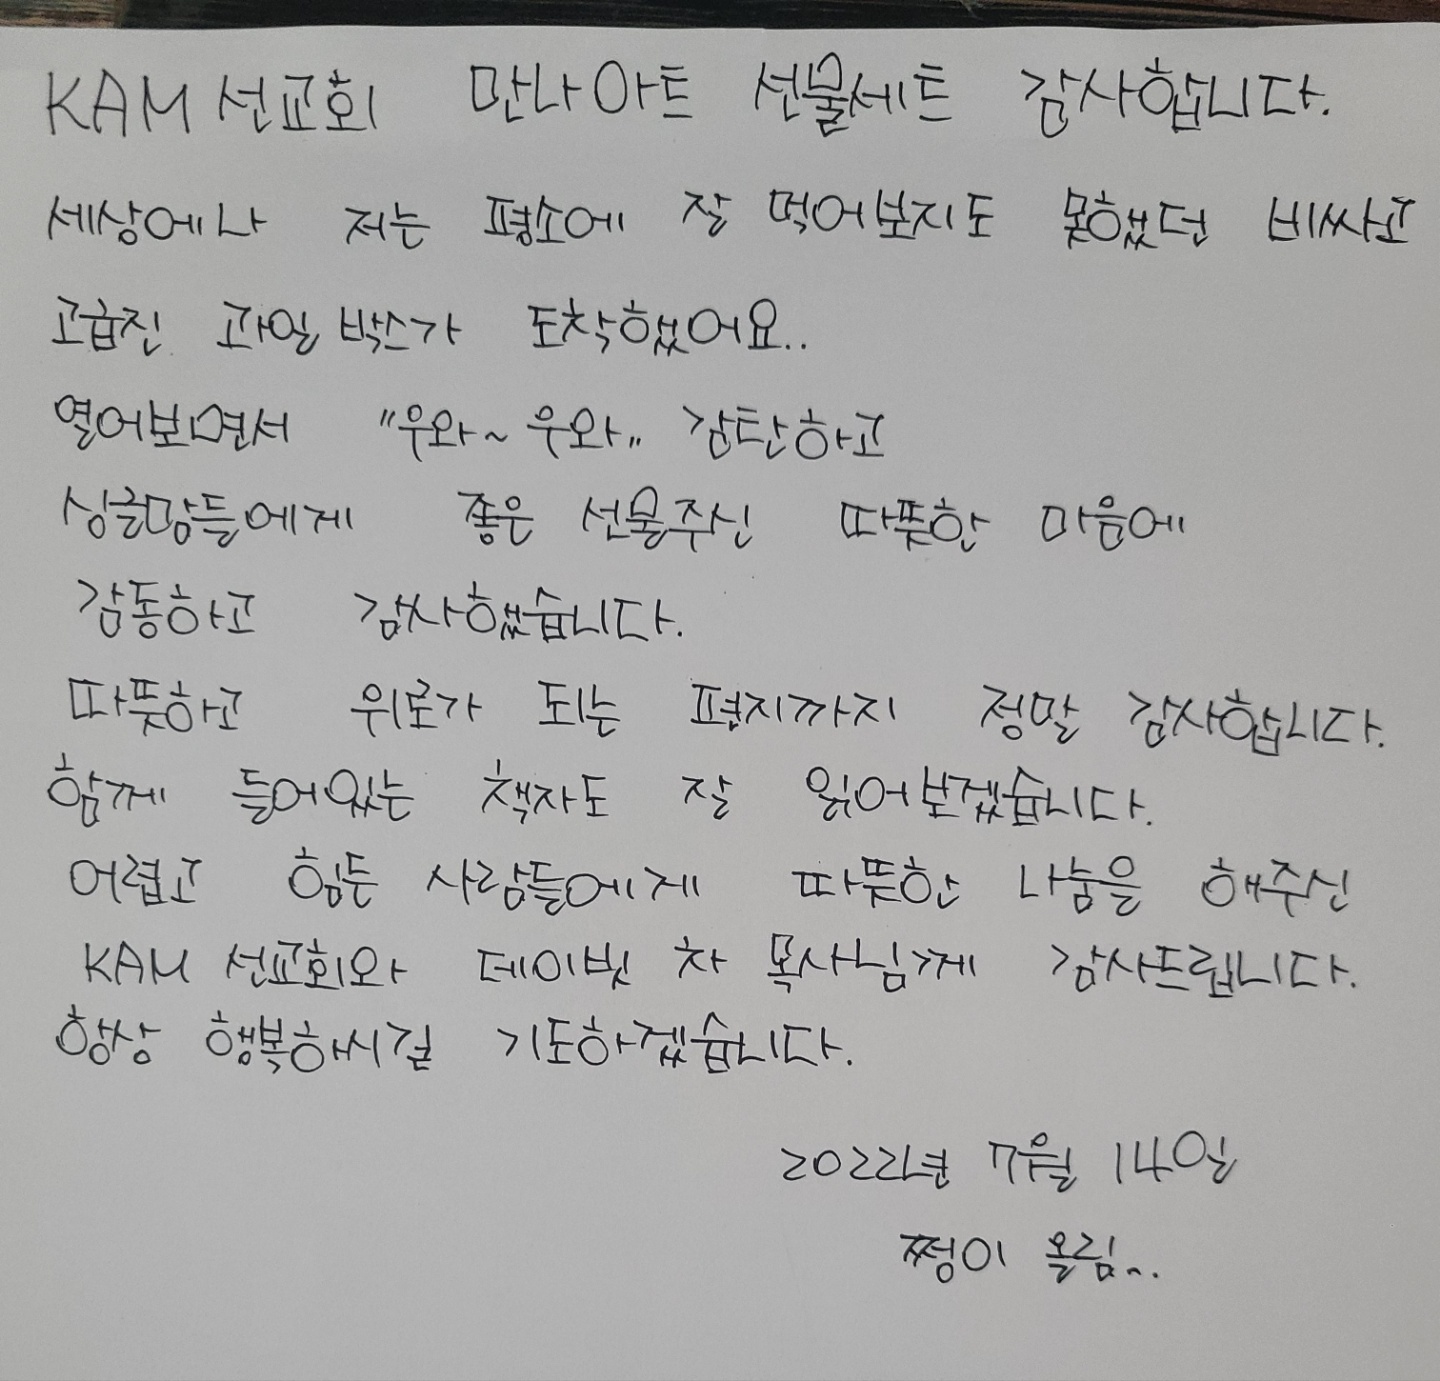 KAM 선교회 만나아트 선물세트 감사합니다.
세상에나 저는 평소에 잘 먹어보지도 못했던 비싸고
고급진 과일 박스가 도착했어요..
열어보면서 "우와~ 우와" 감탄하고
싱글맘들에게 좋은 선물주신 따뜻한 마음에
감동하고 감사했습니다.
따뜻하고 위로가 되는 편지까지 정말 감사합니다.
함께 들어있는 책자도 잘 읽어보겠습니다.
어렵고 힘든 사람들에게 따뜻한 나눔을 해주신
KAM 선교회와 데이빗 차 목사님께 감사드립니다.
항상 행복하시길 기도하겠습니다.
2022년 7월 14일
쩡이 올림~..